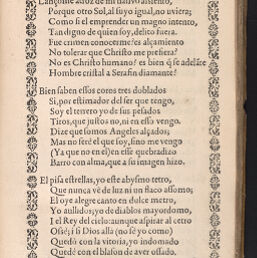 Lançome atroz de mi nativo assiento,
Porque otro Sol, al suyo igual, no uviera;
Como si el emprender un magno intento,
Tan digno de quien soy, delito fuera.
Fue crimen conocerme? es alçamiento
No tolerar que Christo me prefiera?
No es Christo humano? es bien q̃ se adelãte
Hombre cristal a Serafin diamante?
Bien saben essos coros tres doblados
Si, por estimador del ser que tengo,
Soy el terrero yo de sus pesados
Tiros, que justo no, ni en esso vengo.
Dize que somos Angeles alçados;
Mas no seré el que soy, sino me vengo
(Ya que no en el) en esse quebradizo
Barro con alma, que a su imagen hizo.
El pisa estrellas, yo este abysmo tetro,
Que nunca vé de luz ni un flaco assomo;
El oye alegre canto en dulce metro,
Yo aullidos, yo de diablos mayordomo,
I el Rey del cielo: aunque aspirar al cetro
Ossé; i si Dios alla (no sé yo como)
Quedó con la vitoria, yo indomado
Quedé con el blason de aver ossado.